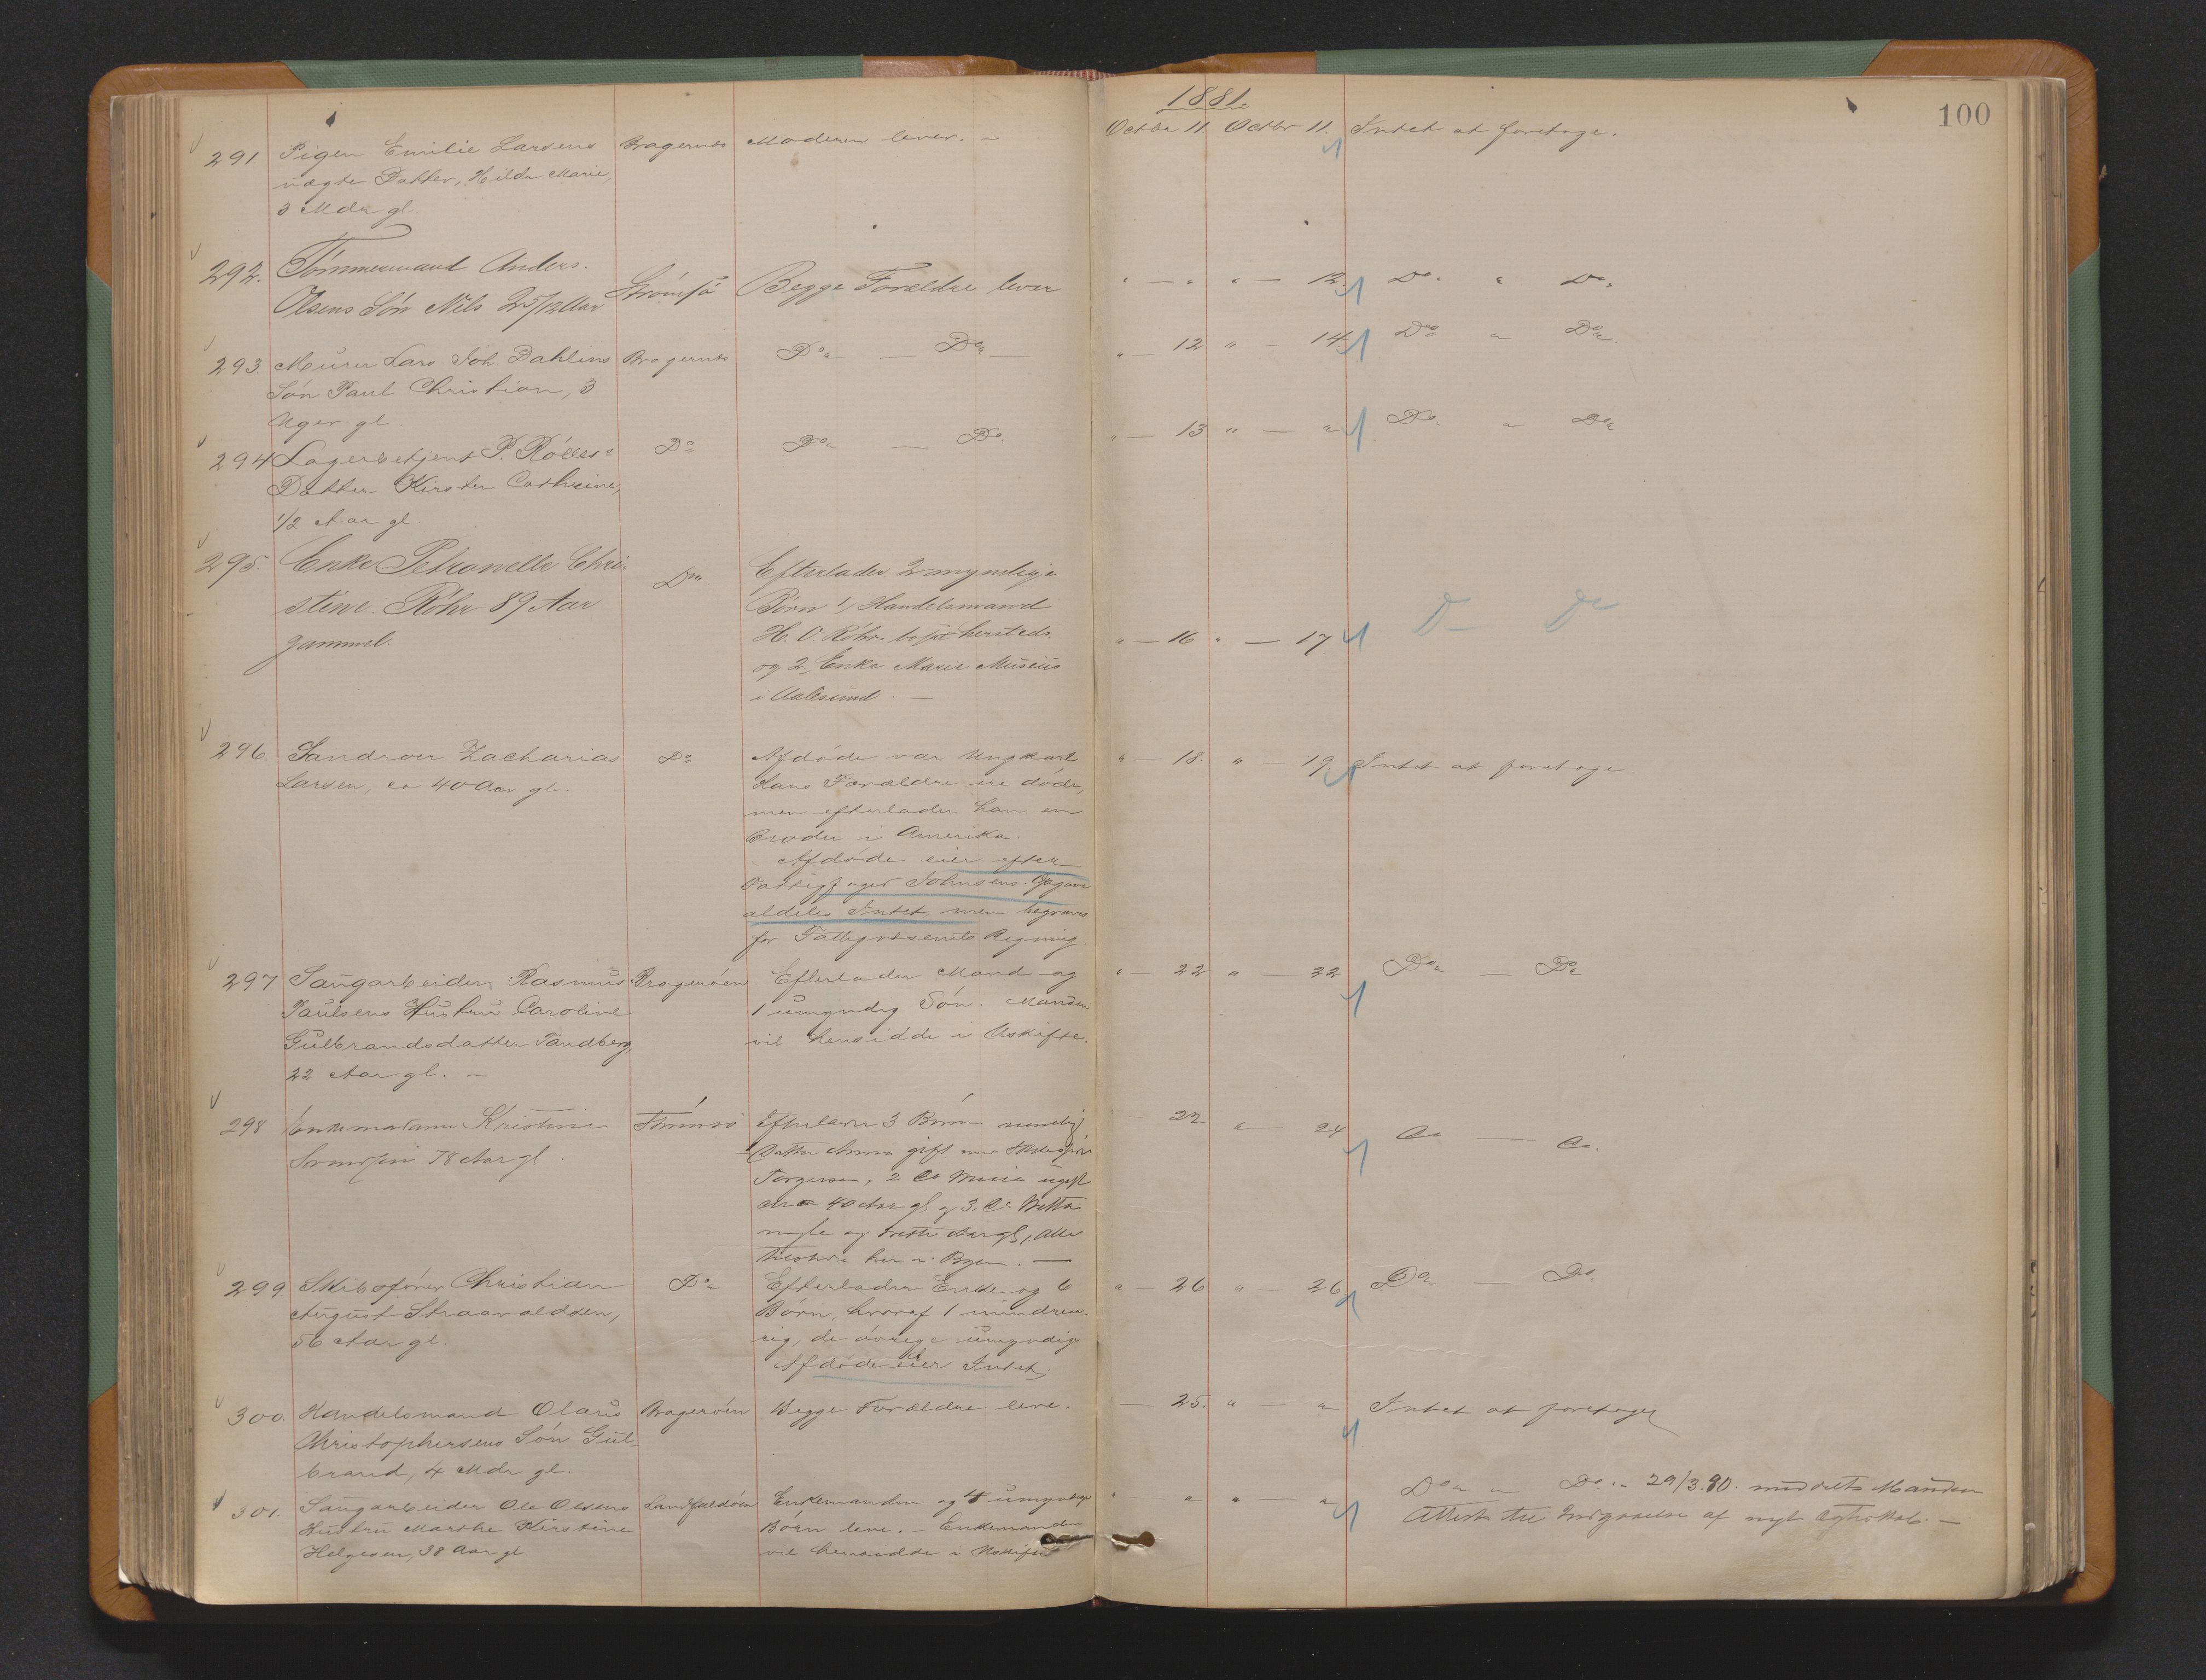 1881.
100
291 Pigen Emilie Larsens Bragernes Moderen lever. — Octbr 11. Octbr 11. Intet at foretage.
uægte Datter, Hilda Marie,
3 Mdr gl.
292. Tömmermand Anders Strömsö Begge Forældre lever " — " " — 12. Do " Do
Olsens Sön Nils 2 5/12 Aar
293. Murer Lars Joh. Dahlins Bragernes Do — Do " — 12 " — 14. Do " Do
Sön Paul Christian, 3
Uger gl.
294 Lagerbetjent P. Rölles Do Do — Do " — 13 " — " Do " Do
Datter Kirsten Cathrine,
1/2 Aar gl.
295. Enke Petronelle Chri- Do Efterlader 2 myndige
stine Röhr 89 Aar Börn 1, Handelsmand
gammel. H. O. Röhr hersteds " — 16 " — 17 D — D
og 2, Enke Marie Museüs
i Aalesund. —
296. Sandroer Zacharias Do Afdöde var Ungkarl " — 18 " — 19. Intet at foretage
Larsen, ca 40 Aar gl. Hans Forældre ere döde,
men efterlader han en
Broder i Amerika.
Afdöde eier efter
Fattigfoged Johnsens Opgave
aldeles Intet, men begraves
for Fattigvæsenets Regning.
297 Saugarbeider Rasmus Brageröen Efterlader Mand og " — 22 " — 22 Do — Do
Paulsens Hustru Caroline 1 umyndig Sön. Manden
Gulbrandsdatter Tandberg, vil hensidde i Uskifte.
22 Aar gl. —
298 Enkemadame Kristine Strömsö Efterlader 3 Börn nemlig — 22 " — 24 Do — Do.
78 Aar gl. Datter Anna gift med
Torgersen, 2 Do Maria ugift
40 Aar gl og 3. Do
nogle og Aar gl, alle
her i Byen. —
299 Skibsförer Christian Do Efterlader Enke og 6 " — 26 " — 26 Do — Do.
August Straavoldsen, Börn, hvoraf 1 mindreaa-
56 Aar gl. rig, de övrige umyndige
Afdöde eier Intet.
300. Handelsmand Olaus Brageröen Begge Forældre leve. — 25. " — " Intet at foretage
Christophersens Sön Gul-
brand, 4 Mdr gl.
301. Saugarbeider Ole Olsens Landfaldöen Enkemanden og 4 umyndige " " " — " Do " Do. - 29/3.90. meddelts Manden
Hustru Marthe Kirstine Börn leve. — Enkemanden Attest til Indgaaelse af nyt Ægteskab. —
Helgesen, 38 Aar gl vil hensidde i Uskiftet